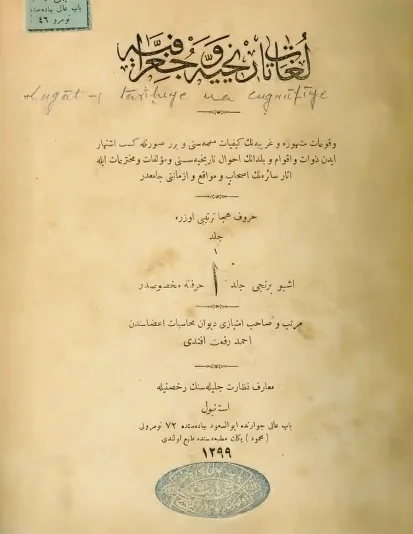 باب عالی جاده‌سنده
نومرو ٤٦
لغات تاریخیه و جغرافیه
Lugât-ı tarihiye ve cugrafiye
وقوعات مشهوره و غریبه‌نك کیفیات مسلمه‌سنی و برر صورتله کسب اشتهار
ایدن ذوات و اقوام و بلدانك احوال تاریخیه‌سنی و مؤلفات و مخترعات ایله
آثار سائره‌نك اصحاب و مواقع و ازماننی جامعدر
حروف هجا ترتیبی اوزره
جلد
١
اشبو برنجی جلد ا حرفنه مخصوصدر
مرتب و صاحب امتیازی دیوان محاسبات اعضاسندن
احمد رفعت افندی
معارف نظارت جلیله‌سنك رخصتیله
استانبول
باب عالی جوارنده ابوالسعود جاده‌سنده ٧٢ نومرولی
( محمود ) بكك مطبعه‌سنده طبع اولندی
١٢٩٩